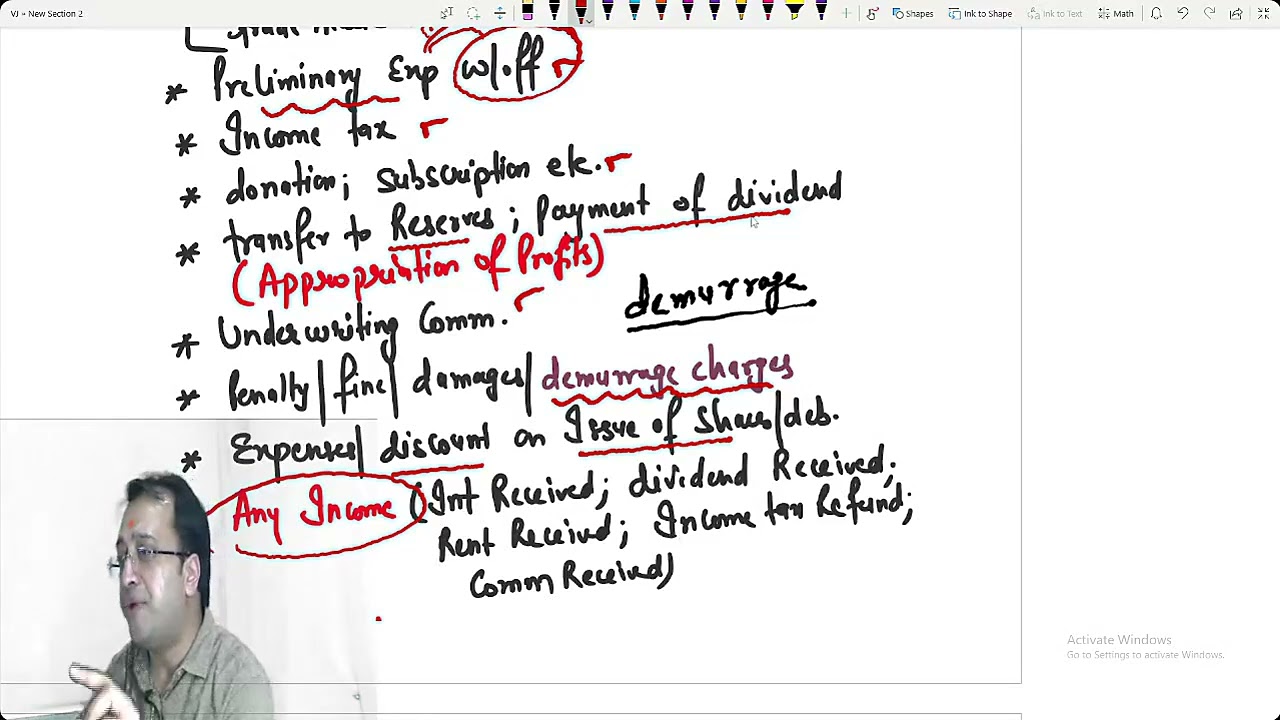 VJ – New Section 2
Shapes Ink to Shape Ink to Text Math
* Preliminary Exp w/.off
* Income tax
* donation; subscription etc.
* transfer to Reserves; payment of dividend
(Appropriation of Profits)
demurrage
* Underwriting Comm.
* Penalty/fine/damages/demurrage charges
* Expenses/discount on Issue of Shares/deb.
Any Income (Int Received; dividend Received;
Rent Received; Income tax Refund;
Comm Received)
Activate Windows
Go to Settings to activate Windows.